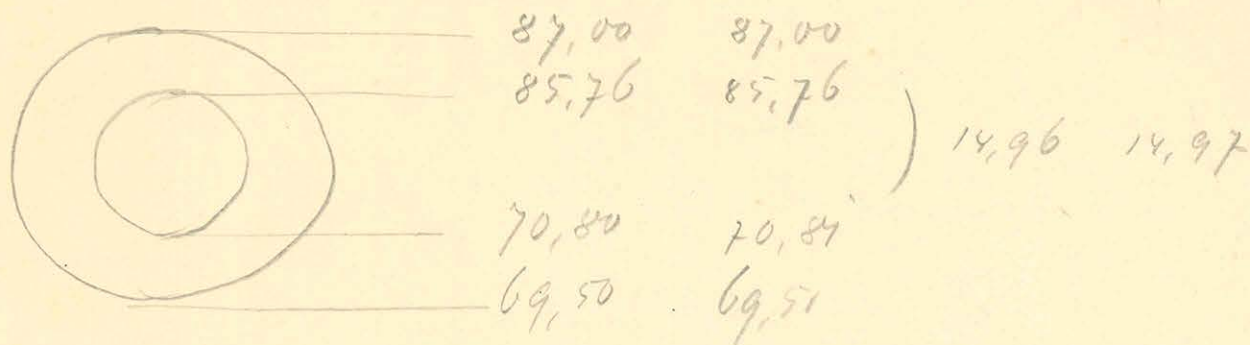 87,00 87,00
85,76 85,76
) 14,96 14,97
70,80 70,81
69,50 69,51